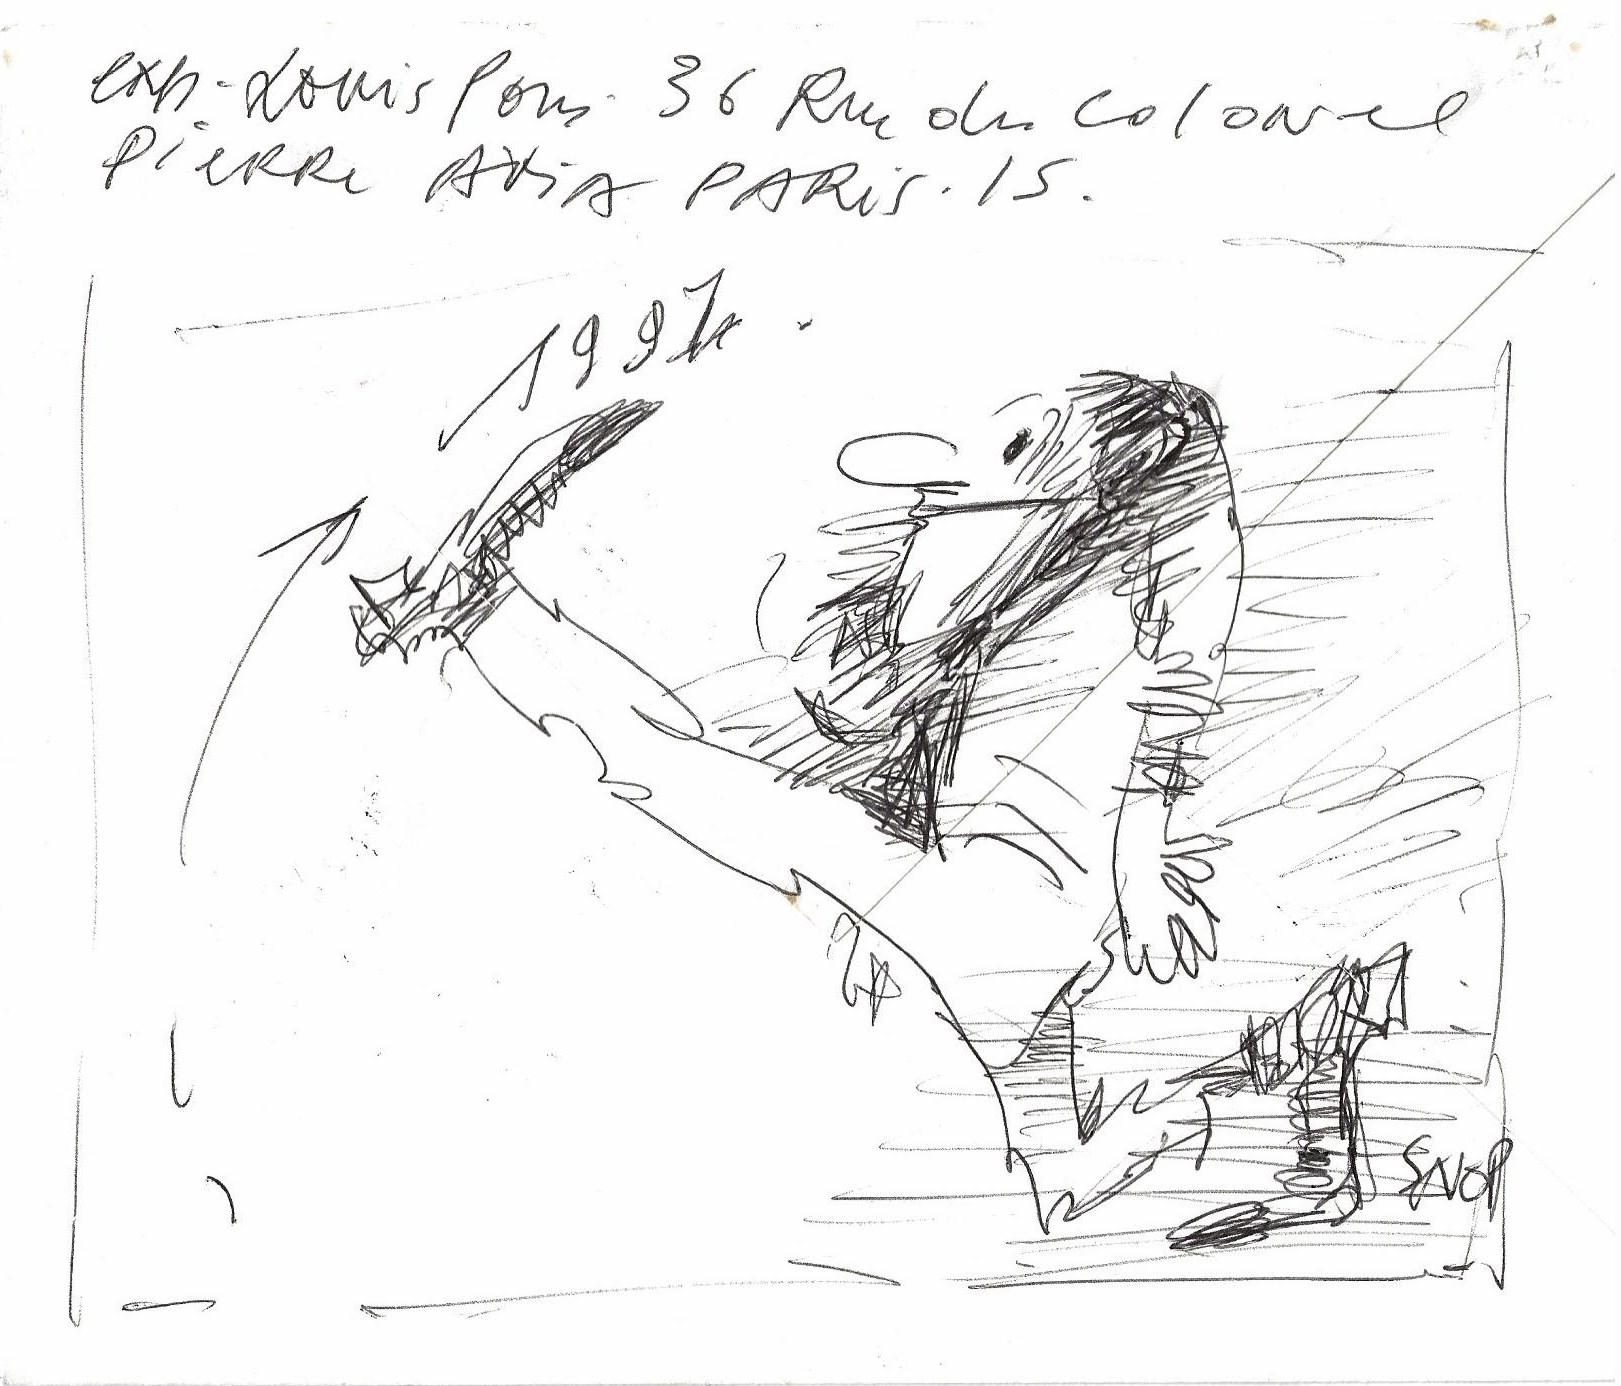 exp. Louis Pons. 36 Rue du Colonel
Pierre AViA PARiS. 15.
1997.
SNOP